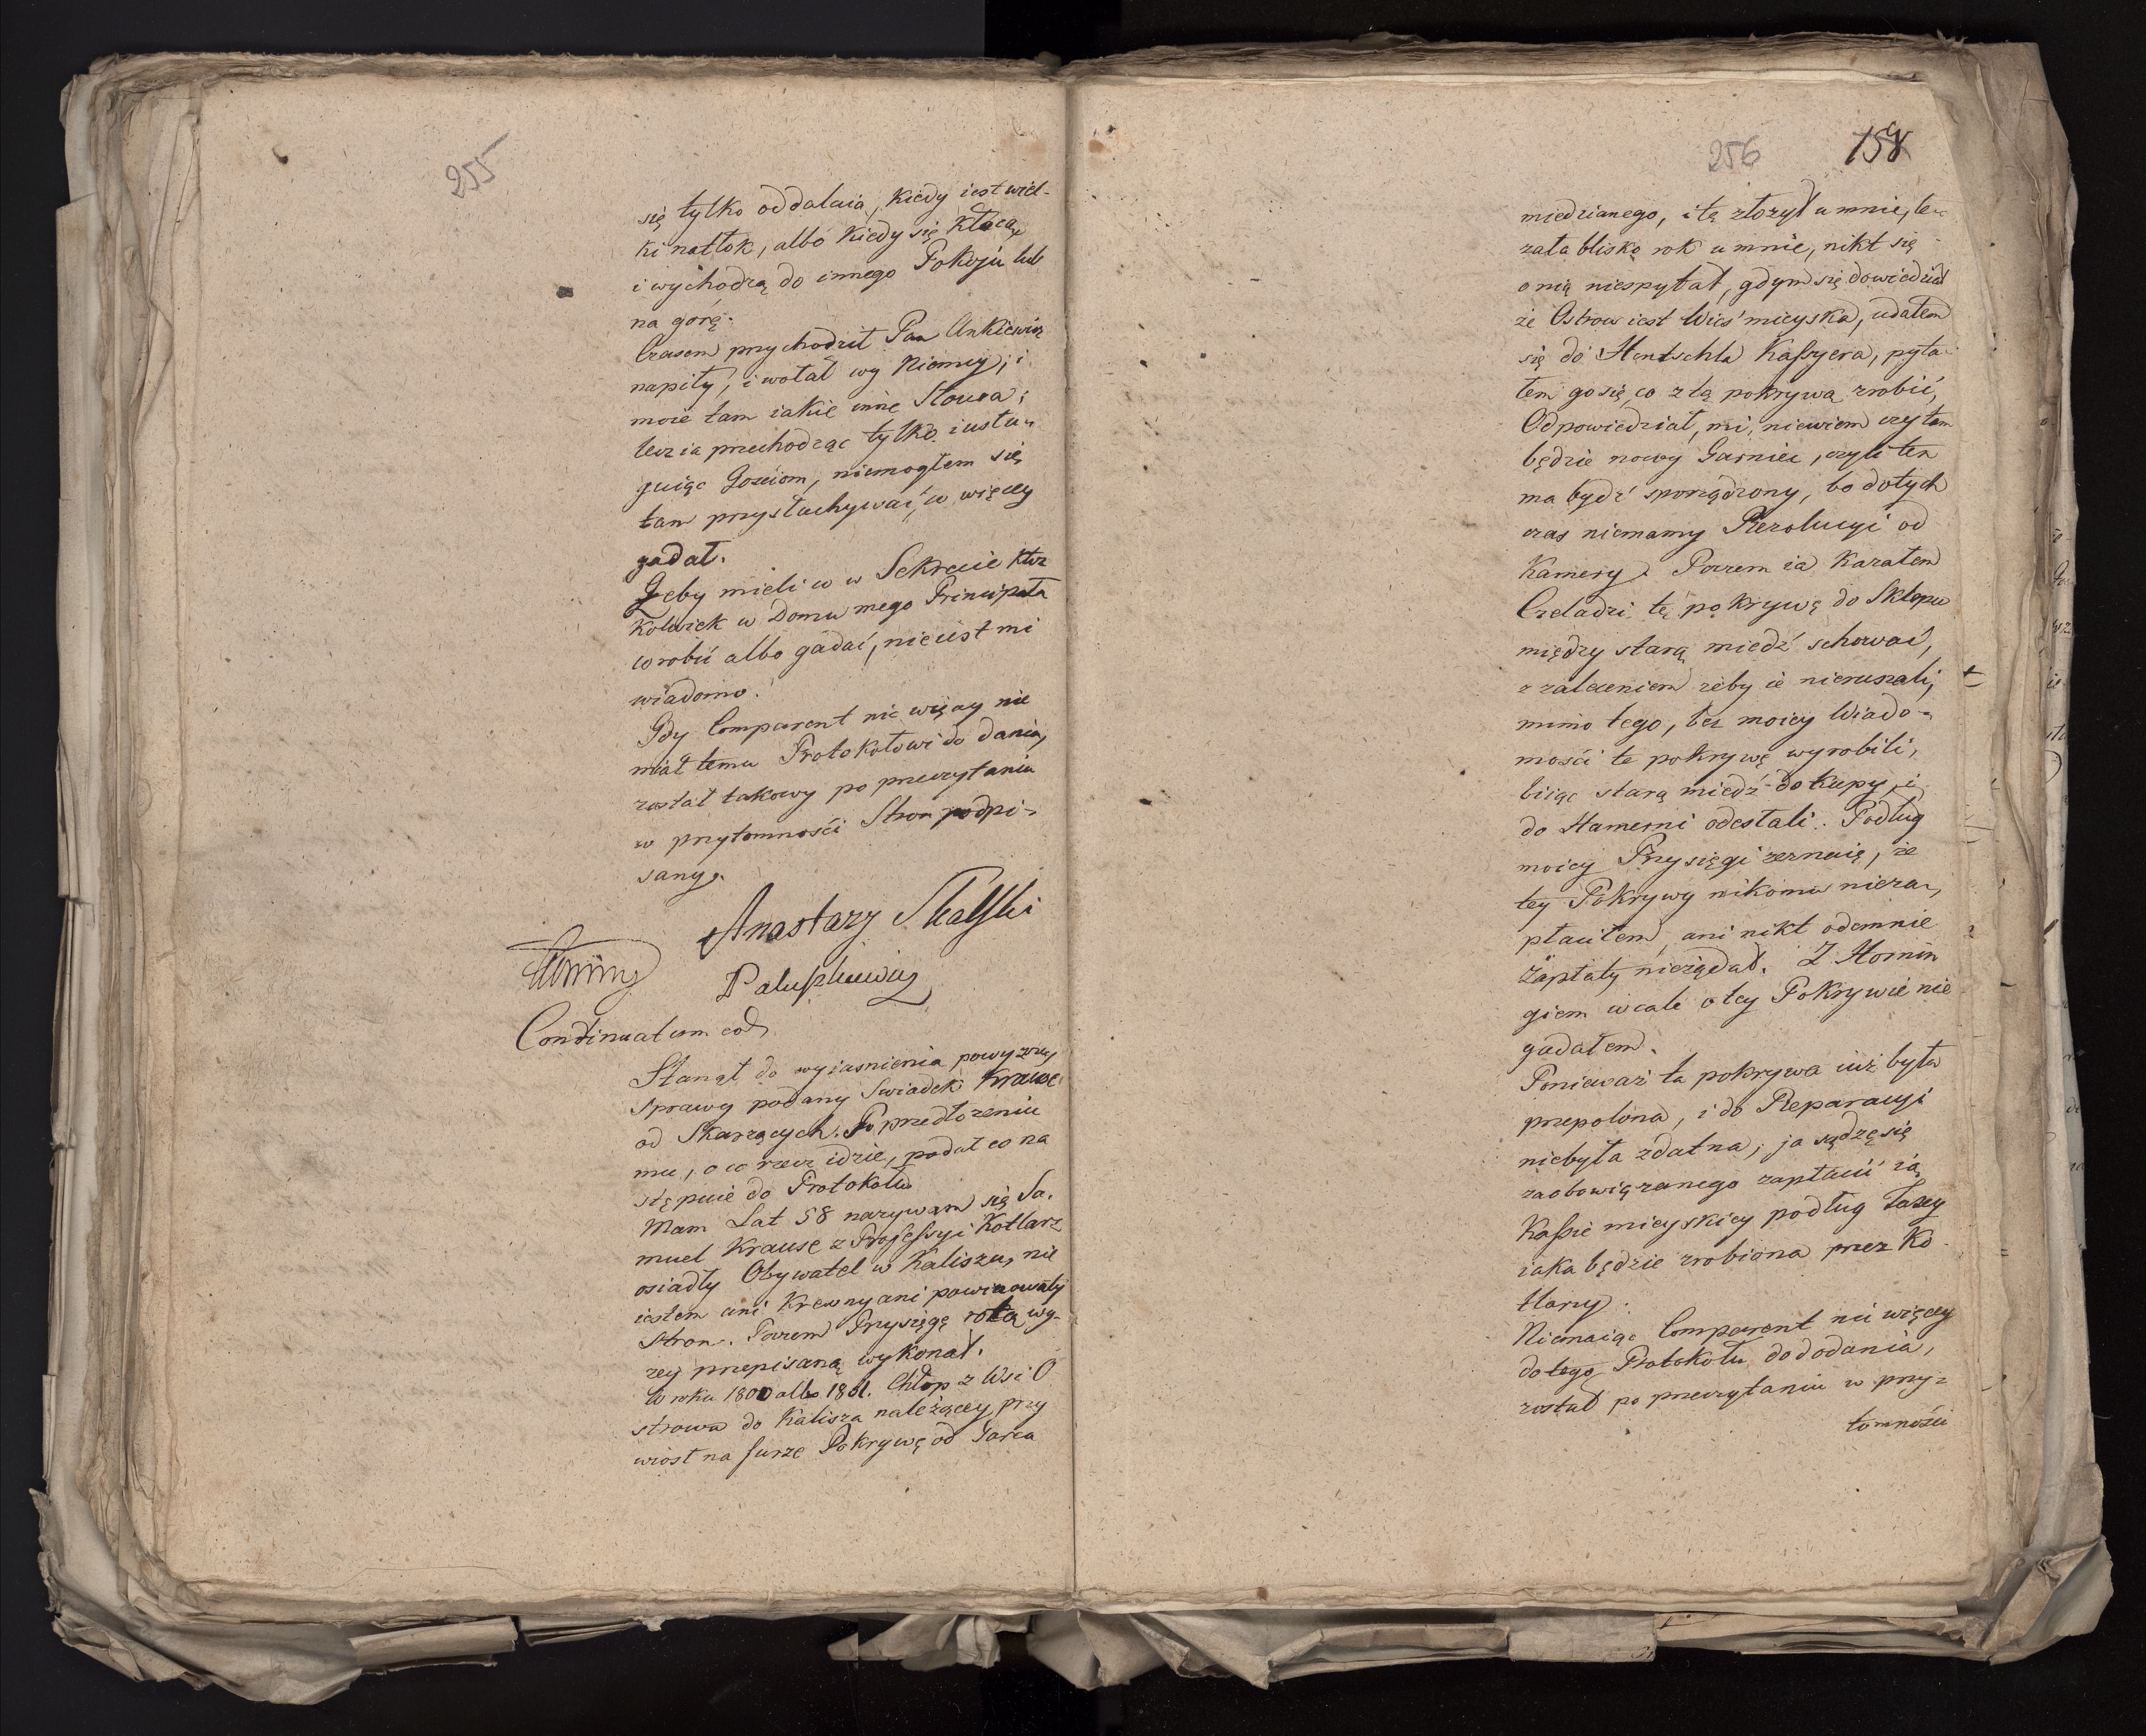 255
się tylko oddalaią, kiedy iest wiel-
ki natłok, albo kiedy się kłocą,
i wychodzą do innego Pokoju lub
na gorę.
Czasem przychodził Pan Ankiewicz
napiły, i wołał wy Niemcy, i
moie tam iakie inne Słowa;
lecz ia przechodząc tylko iusłu-
guiąc Gosciom, niemogłem się
tam przysłuchywać, co więcey
gadał.
Żeby mieli co w Sekrecie ktoz
kolwiek w Domu mego Principała
co robić albo gadać, nie iest mi
wiadomo.
Gdy Comparent nic więcey nie
miał temu Protokołowi do dania,
został takowy po przeczytaniu
w przytomności Stron podpi-
sany.
Anastazy Skalski
Paluszkiewicz
Continuatum eod
Stanął do wyiasnienia powyzszey
Sprawy podany Swiadek Krause
od Skarzących. Po przedłozeniu
mu, o co rzecz idzie, podał co na
stępuie do Protokołu
Mam Lat 58 nazywam się Sa-
muel Krause z Professyi Kotlarz
osiadły Obywatel w Kaliszu, nie
iestem ani Krewny ani powinowaty
Stron. Poczem Przysięgę rotą wy-
zey przepisaną wykonał.
W roku 1800 albo 1801. Chłop z Wsi O
strowa do Kalisza należącey przy
wiosł na furze Pokrywę od Garca
256 158
miedzianego, i tę złozył u mnie, le-
zała blisko rok u mnie, nikt się
o nią niespytał, gdym się dowiedział
że Ostrow iest Wieś mieyska, udałem
się do Hentschla Kassyera, pyta-
łem go się, co z tą pokrywą zrobić,
Odpowiedział, mi, niewiem czy tam
będzie nowy Garniec, czyli ten
ma bydź sporządzony, bo dotych
czas niemamy Rezolucyi od
Kamery. Poczem ia kazałem
Czeladzi tę pokrywę do Sklepu
między starą miedź schować,
z zaleceniem zeby ie nieruszali,
mimo tego, bez moiey Wiado-
mości te pokrywę wyrobili,
biiąc starą miedź do kupy, i
do Hamerni odesłali. Podług
moiey Przysięgi zeznaię, że
tey Pokrywy nikomu nieza-
płaciłem, ani nikt odemnie
zapłaty nieżądał. Z Hornin
giem wcale o tey Pokrywie nie
gadałem.
Ponieważ ta pokrywa iuż była
przepolona, i do Reparacyi
niebyła zdatna, ja sądzę się
zaobowiązanego zapłacić ią
Kassie mieyskiey podług Taxy
iaka będzie zrobiona przez Ko-
tlarzy.
Niemaiąc Comparent nic więcey
do tego Protokołu do dodania,
został po przeczytaniu w przy-
tomności